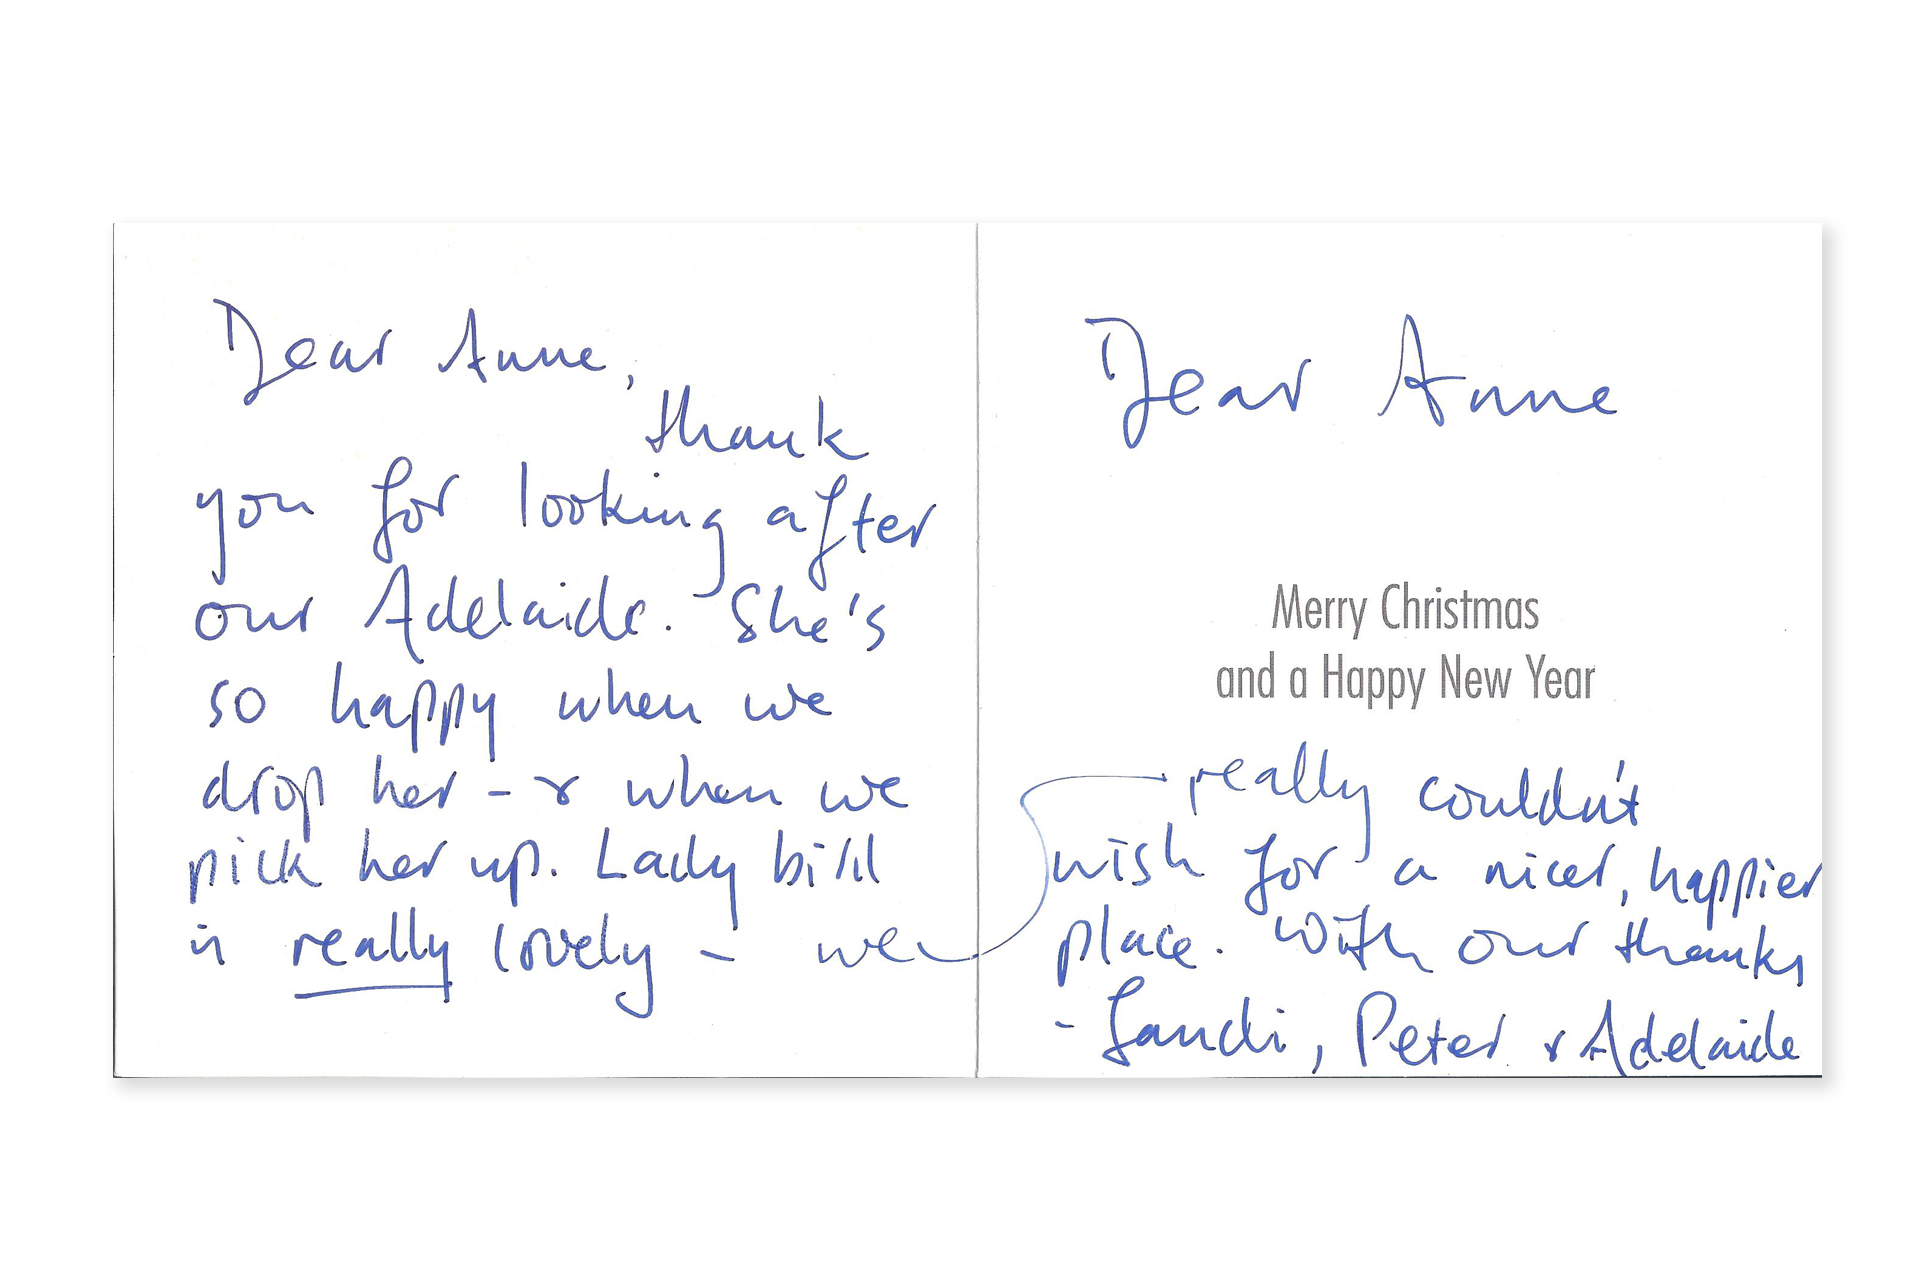 Dear Anne,
thank
you for looking after
our Adelaide. She's
so happy when we
drop her - & when we
pick her up. Lady bird
is really lovely - we
Dear Anne
Merry Christmas
and a Happy New Year
really couldn't
wish for a nicer, happier
place. With our thanks
- Sandi, Peter & Adelaide